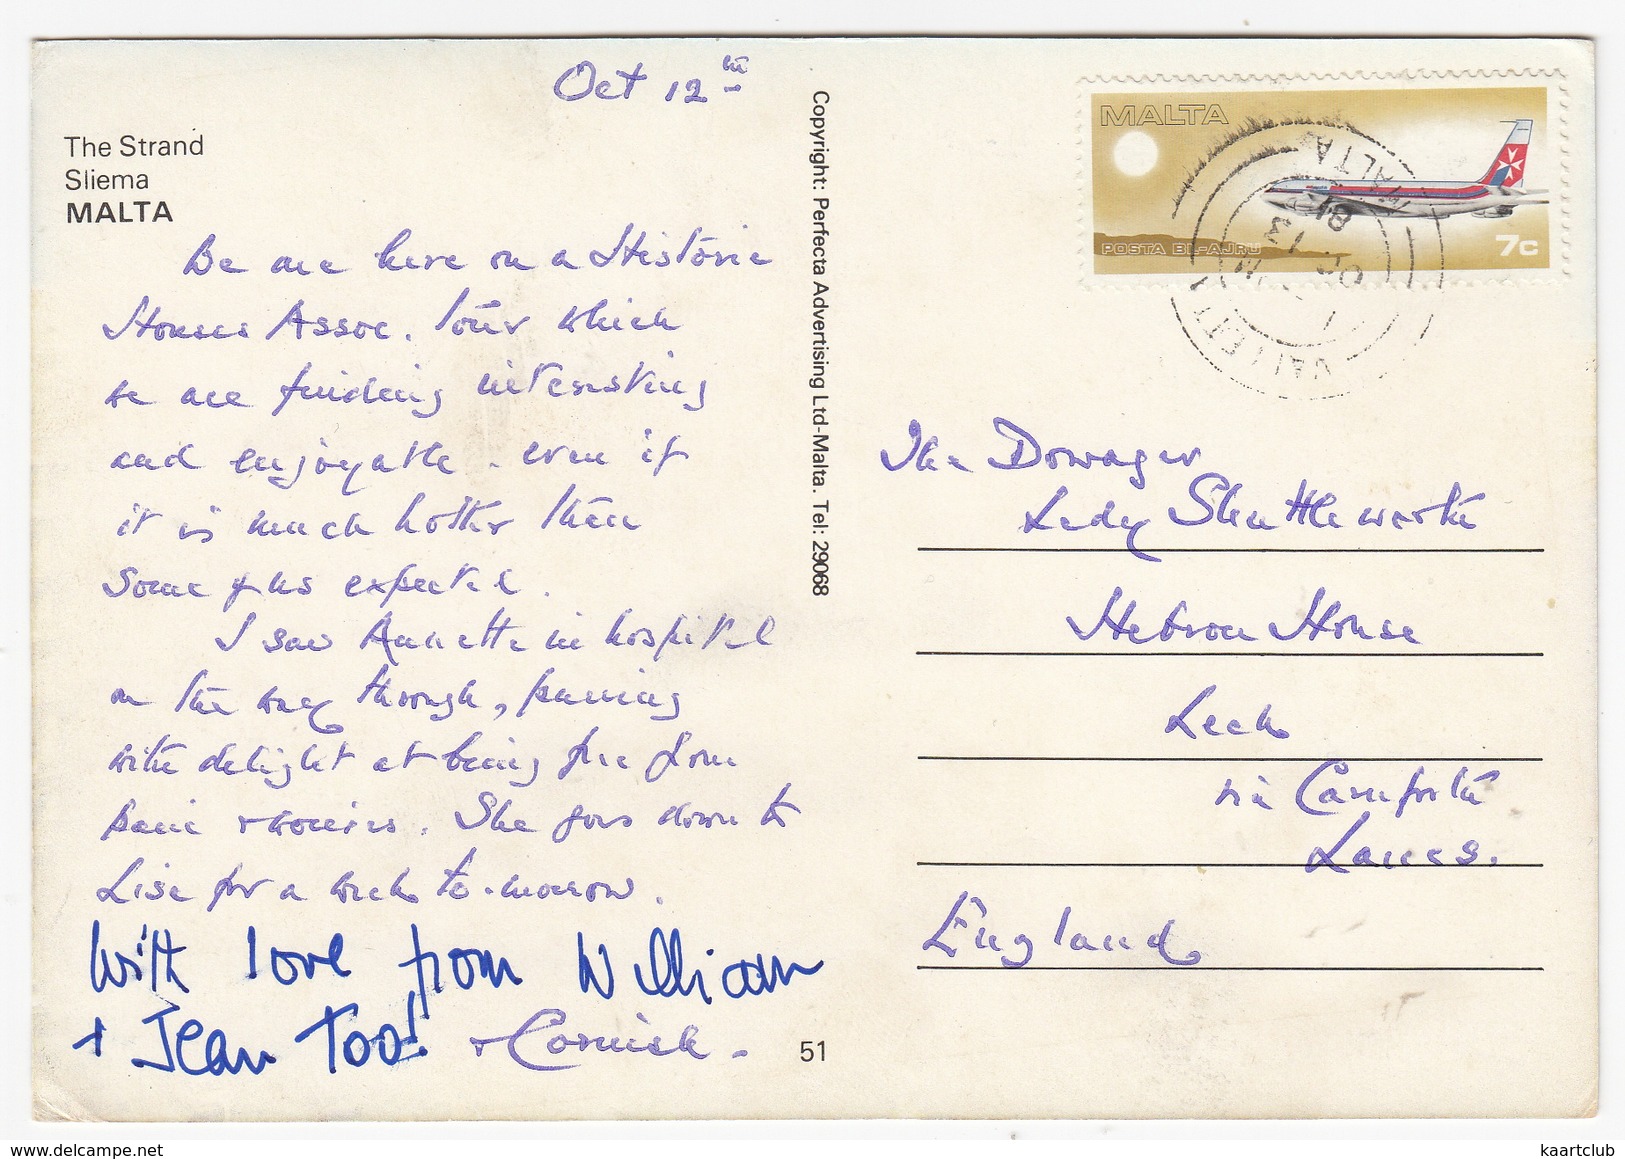 Oct 12th
The Strand
Sliema
MALTA
We are here on a Historic
Houses Assoc. Tour which
we are finding interesting
and enjoyable. even if
it is much hotter than
some of us expected.
I saw Annette in hospital
on the way through, purring
with delight at being free from
pain & worries. She goes down to
Lise for a week to-morrow.
With love from William
+ Jean Too! + Cornish.
51
Copyright: Perfecta Advertising Ltd-Malta. Tel: 29068
MALTA
POSTA BL-AJRU
7c
VALLETTA
MALTA
13 OC
81
The Dowager
Lady Shuttleworth
Hebron House
Leck
via Carnforth
Lancs.
England
kaartclub